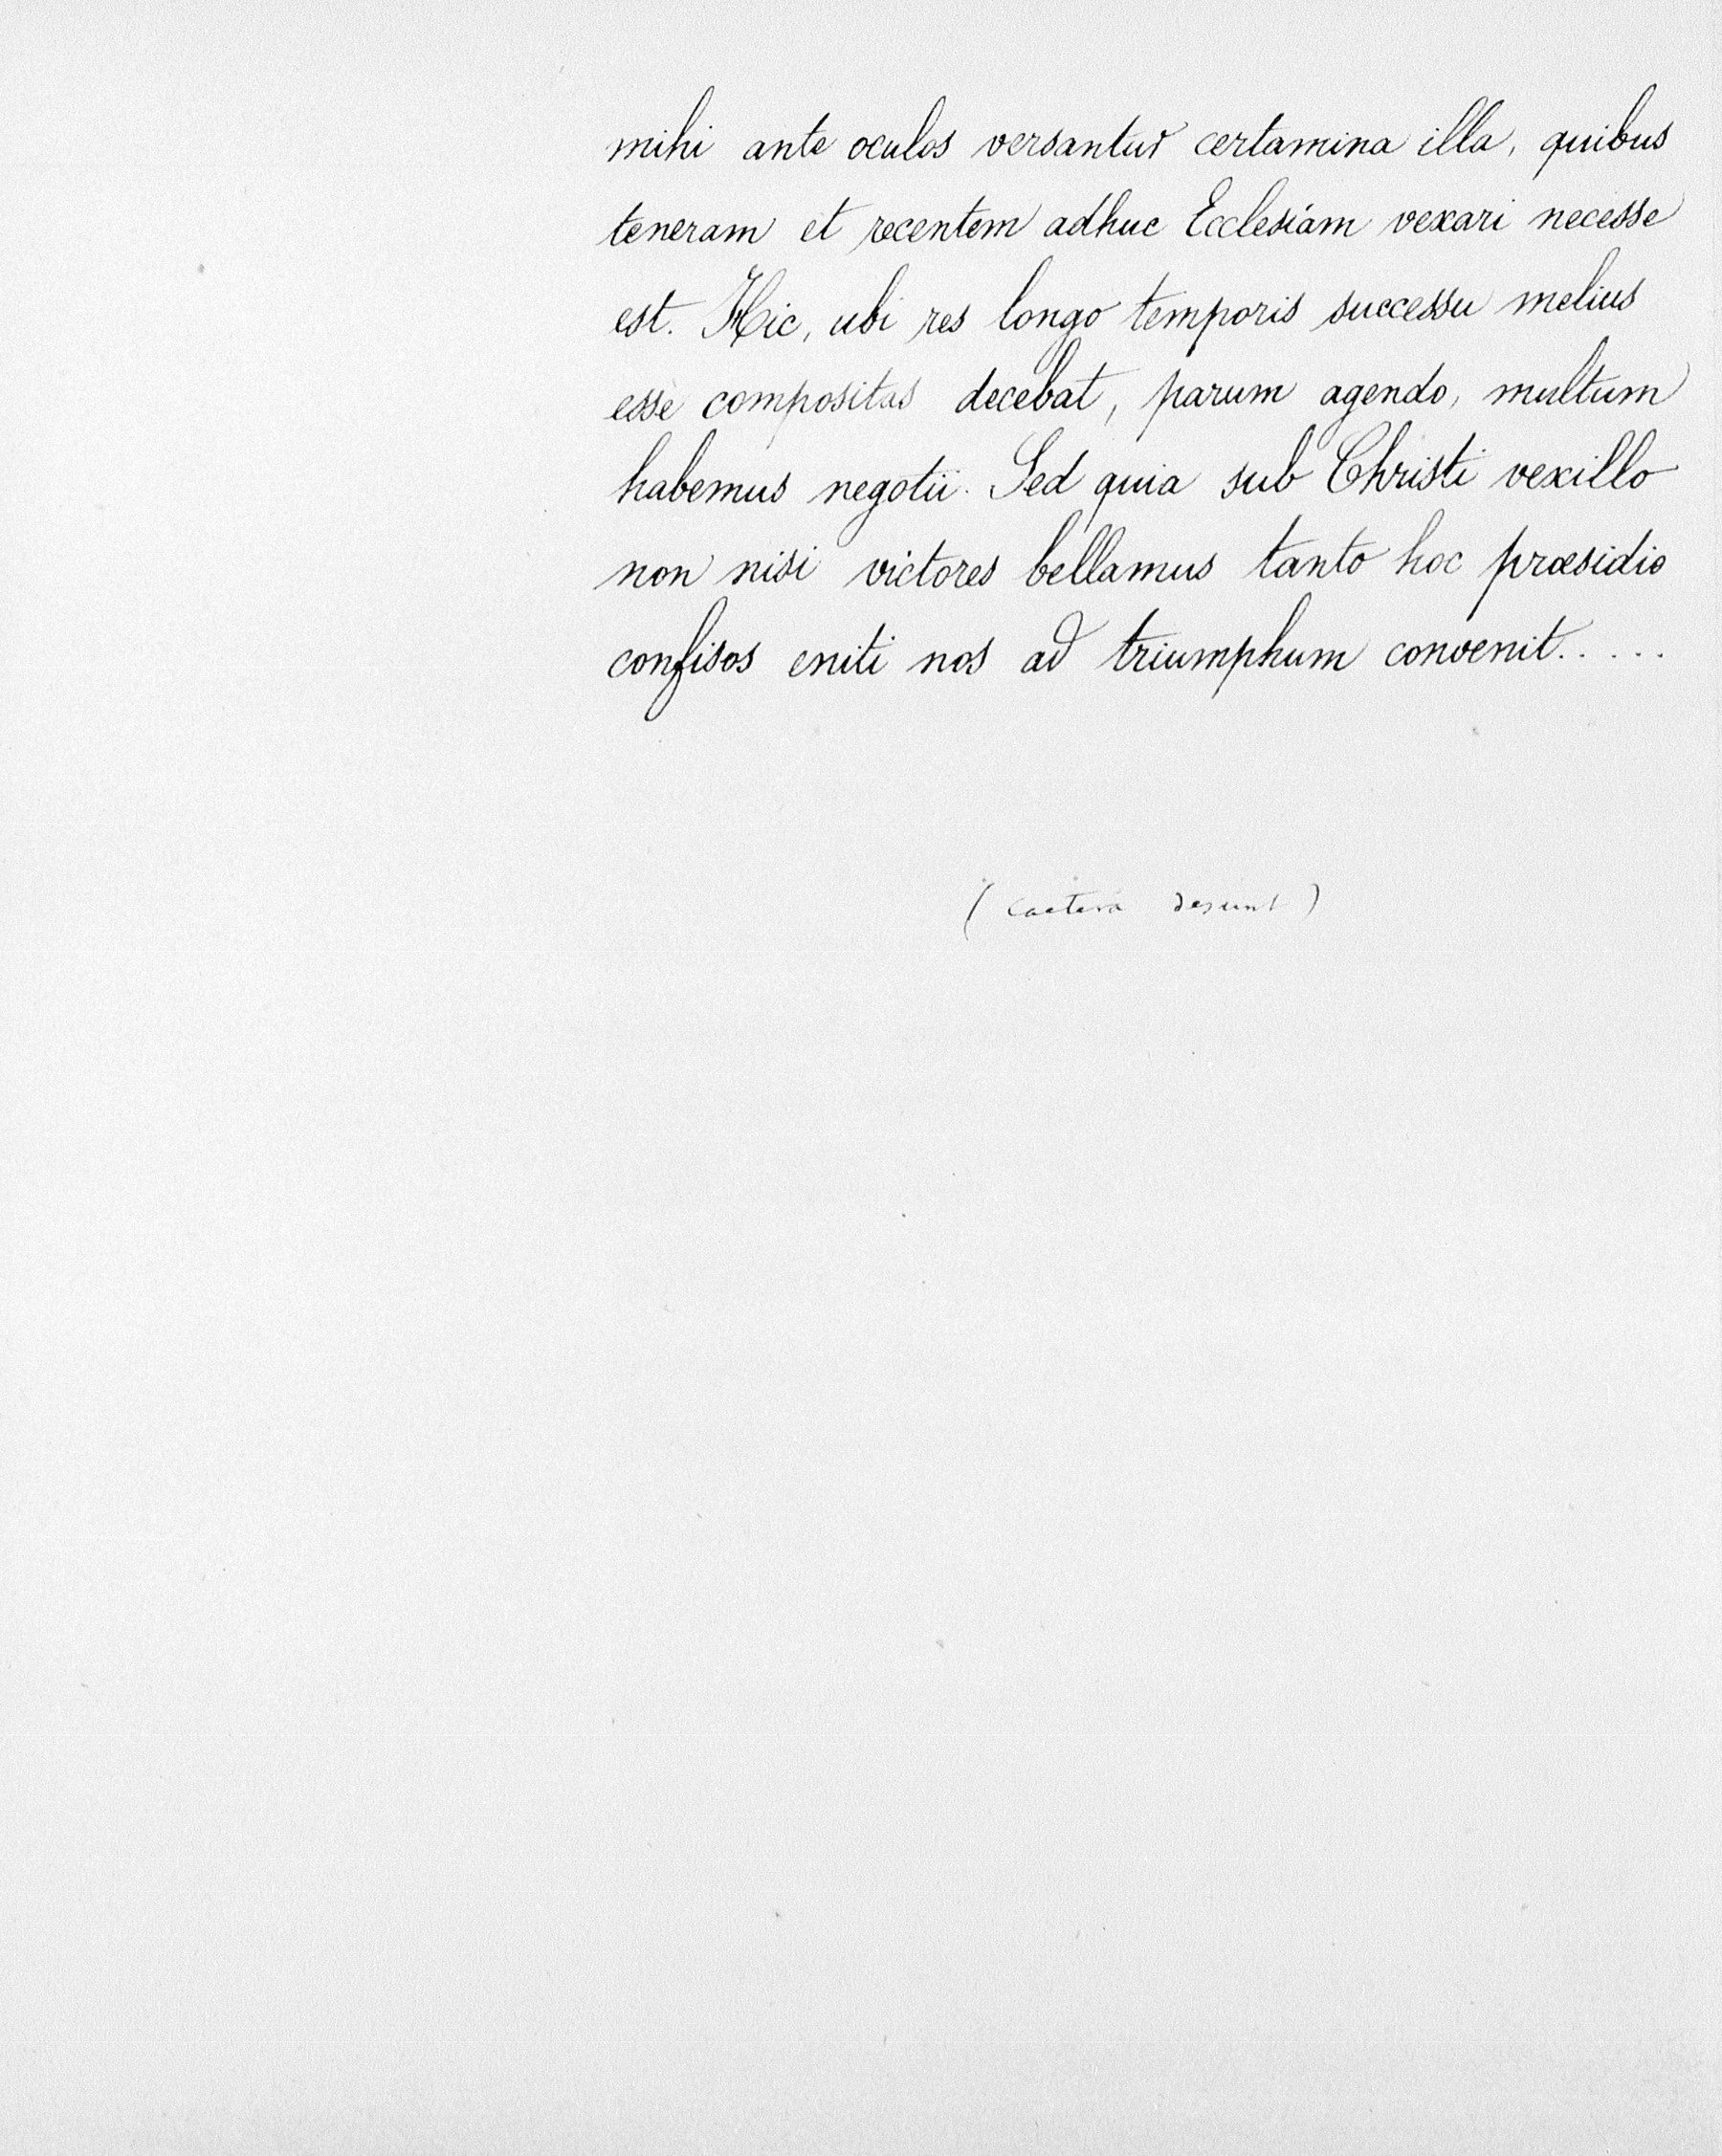 mihi ante oculos versantur certamina illa, quibus
teneram et recentem adhuc Ecclesiam vexari necesse
est. Hic, ubi res longo temporis successu melius
esse compositas decebat, parum agendo, multum
habemus negotii. Sed quia sub Christi vexillo
non nisi victores bellamus tanto hoc præsidio
confisos eniti nos ad triumphum convenit.....
(caetera desunt)